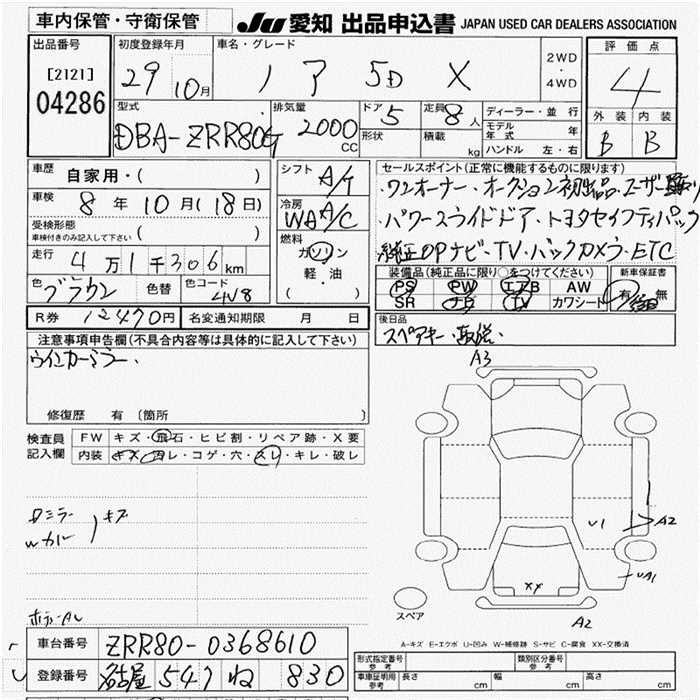 車内保管・守衛保管
JU 愛知 出品申込書 JAPAN USED CAR DEALERS ASSOCIATION
出品番号
[2121]
04286
初度登録年月
29 10月
車名・グレード
ノア 5D X
2WD
・
4WD
評価点
4
外装 内装
B B
型式
DBA-ZRR80G
排気量
2000
CC
ドア
5
定員
8人
形状
積載
kg
ディーラー・並行
モデル年式 年
ハンドル 左・右
車歴
自家用・( )
車検
8年10月(18日)
受検形態
車検付きのみ記入して下さい ( )
走行
4万1千306km
色
ブラウン
色替
色コード
4V8
シフト
A/T
冷房
WAA/C
燃料
ガソリン
軽・油
( )
セールスポイント(正常に機能するものに限ります)
・ワンオーナー・オークション初出品・ユーザー買取り
・パワースライドドア・トヨタセイフティパック
純正OPナビ・TV・バックカメラ・ETC
装備品(純正品に限り○をつけてください)
PS PW エアB AW
SR ナビ TV カワシート
新車保証書
有 無
後日品
スペアキー・取説.
R券 12470円
名変通知期限 月 日
注意事項申告欄(不具合内容等は具体的に記入して下さい)
ウインカーミラー.
修復歴 有 〔箇所 〕
検査員
記入欄
FW キズ・飛石・ヒビ割・リペア跡・X要
内装 キズ・コゲ・穴・スレ・キレ・破レ
キズ
A3
U1
A2
UA1
XX
A2
スペア
A-キズ E-エクボ U-凹み W-補修跡 S-サビ C-腐食 XX-交換済
車台番号 ZRR80-0368610
登録番号 名古屋 547 ね 830
形式指定番号
参考
類別区分番号
参考
車庫証明用
参考
長さ cm 幅 cm 高さ cm